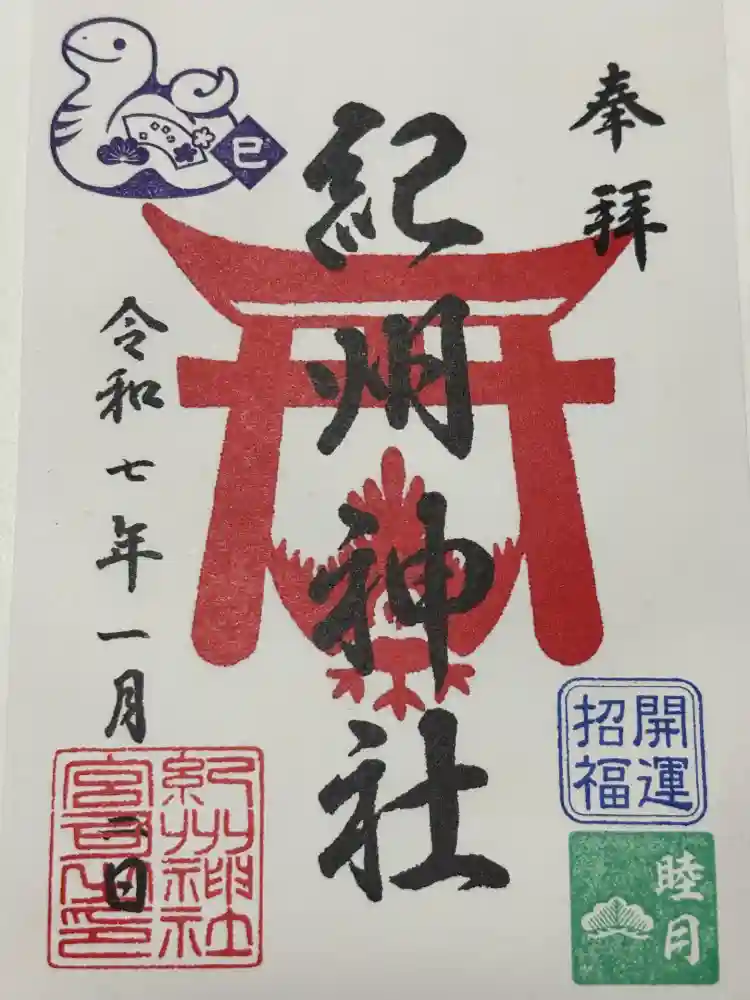 奉拝
紀州神社
令和七年一月二日
巳
開運
招福
睦月
紀州神社
宮司之印